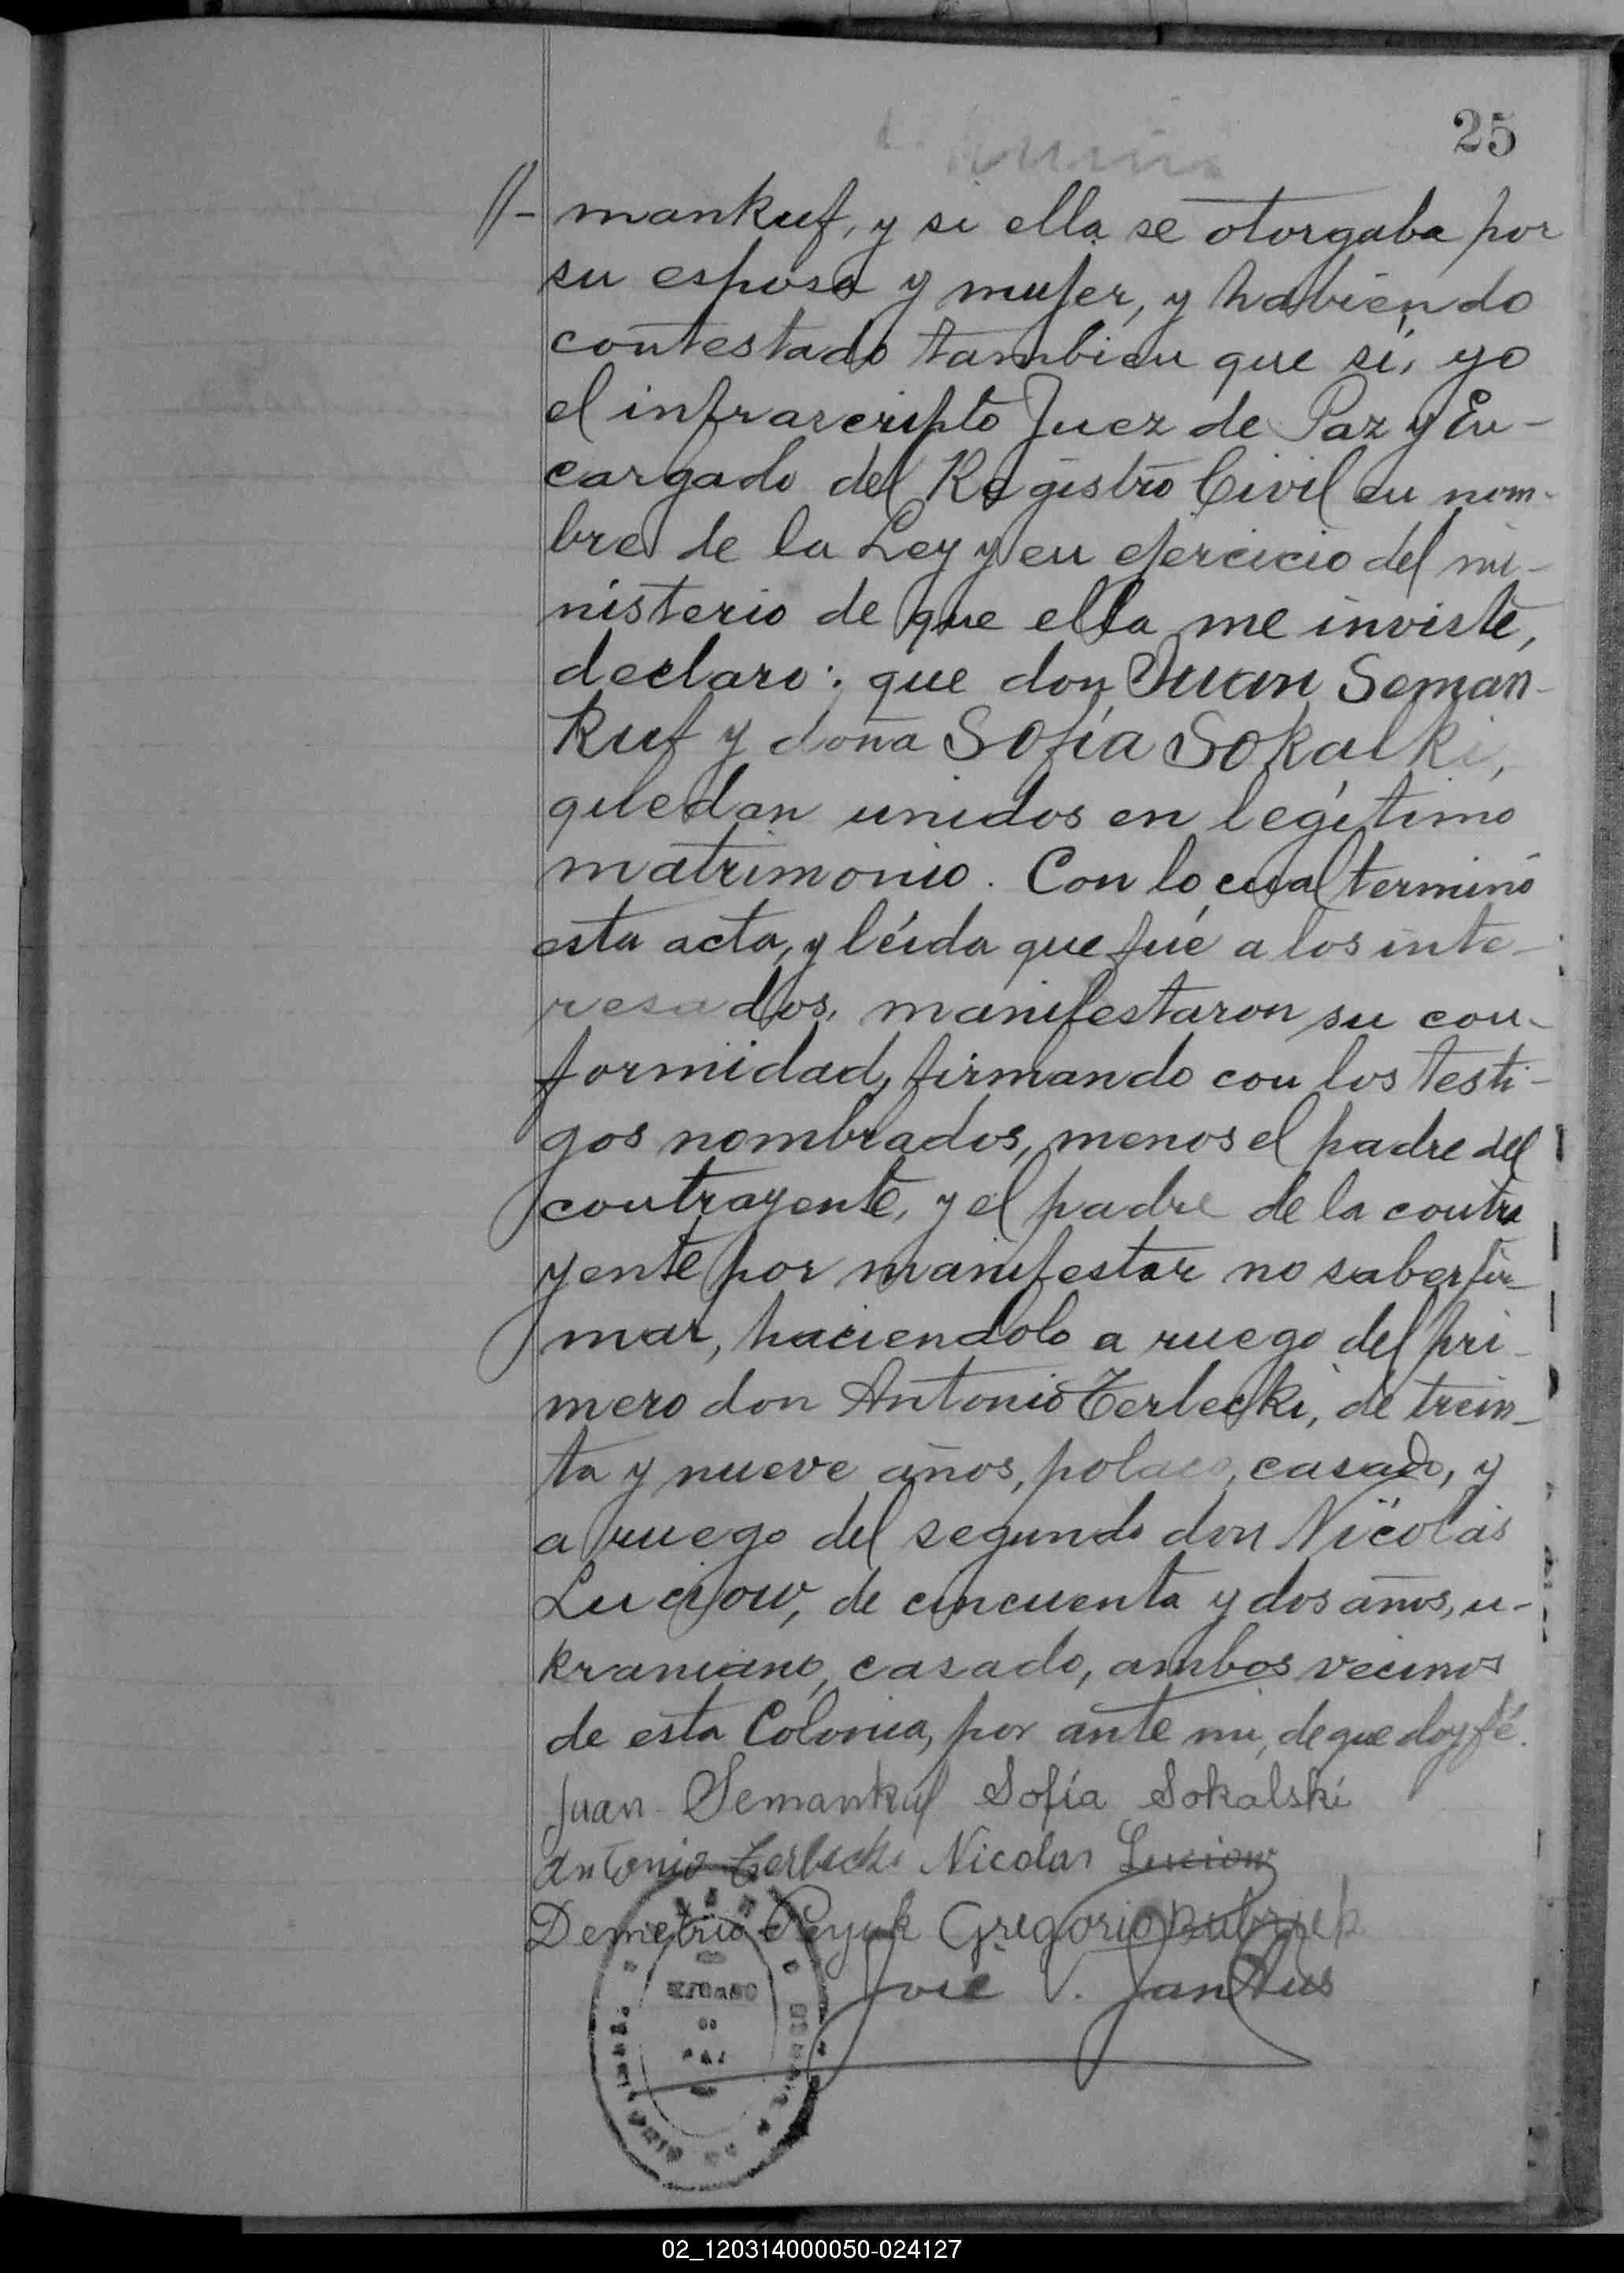 25
//- mankuf, y si ella se otorgaba por
su esposa y mujer, y habiendo
contestado tambien que sí, yo
el infrascripto Juez de Paz y En-
cargado del Registro Civil en nom-
bre de la Ley y en ejercicio del mi-
nisterio de que ella me inviste,
declaro: que don Juan Seman-
kuf y doña Sofía Sokalki,
quedan unidos en legítimo
matrimonio. Con lo cual terminó
esta acta, y léida que fué a los inte-
resados, manifestaron su con-
formidad, firmando con los testi-
gos nombrados, menos el padre del
contrayente, y el padre de la contra
yente por manifestar no saber fir-
mar, haciendolo a ruego del pri-
mero don Antonio Terlecki, de trein-
ta y nueve años, polaco, casado, y
a ruego del segundo don Nicolás
Luciow, de cincuenta y dos años, u-
kraniano, casado, ambos vecinos
de esta Colonia, por ante mi, de que doy fé.
Juan Semankuf Sofía Sokalski
Antonio Terlecki Nicolas Luciow
Demetrio Gregorio
José V.
02_120314000050-024127